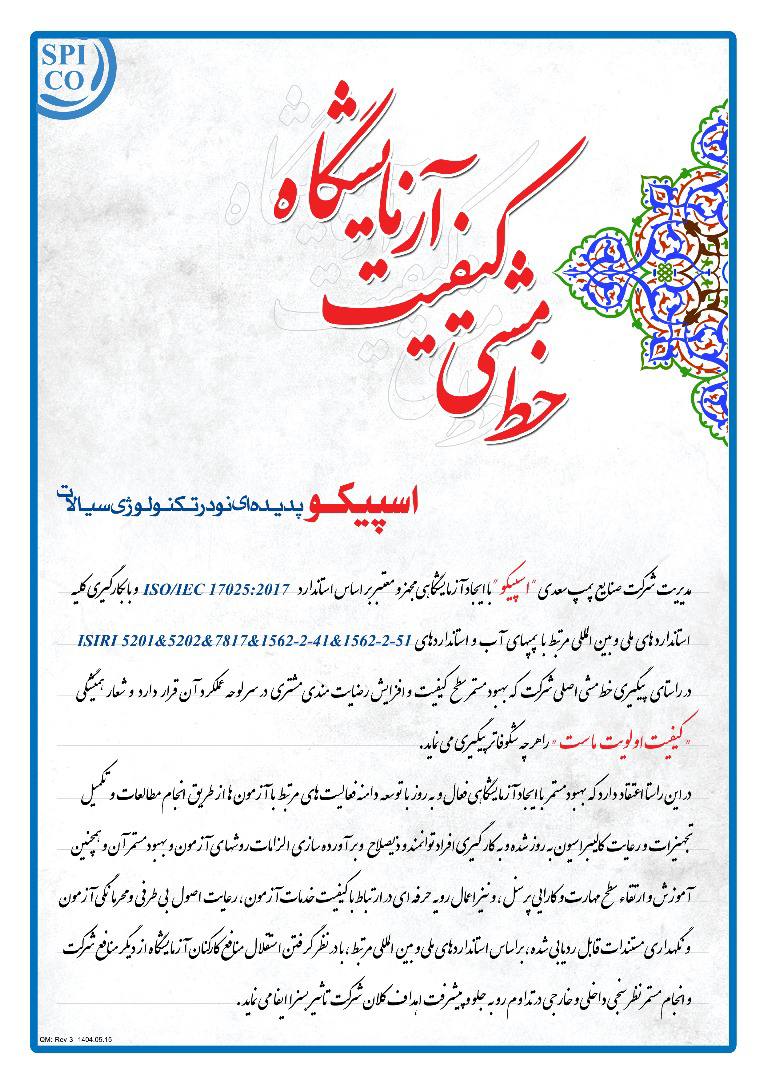 SPI
CO
خط مشی کیفیت آزمایشگاه
اسپیکو پدیده‌ای نو در تکنولوژی سیالات
مدیریت شرکت صنایع پمپ سعدی "اسپیکو" با ایجاد آزمایشگاهی مجهز و معتبر بر اساس استاندارد ISO/IEC 17025:2017 و بکارگیری کلیه
استانداردهای ملی و بین المللی مرتبط با پمپهای آب و استانداردهای ISIRI 5201&5202&7817&1562-2-41&1562-2-51
در راستای پیگیری خط مشی اصلی شرکت که بهبود مستمر سطح کیفیت و افزایش رضایت مندی مشتری در سرلوحه عملکرد آن قرار دارد و شعار همیشگی
"کیفیت اولویت ماست" را هر چه شکوفاتر پیگیری می نماید.
در این راستا اعتقاد دارد که بهبود مستمر با ایجاد آزمایشگاهی فعال و به روز با توسعه دامنه فعالیت های مرتبط با آزمون ها از طریق انجام مطالعات و تکمیل
تجهیزات و رعایت کالیبراسیون به روز شده و به کارگیری افراد توانمند و ذیصلاح و برآورده سازی الزامات روشهای آزمون و بهبود مستمر آن و همچنین
آموزش و ارتقاء سطح مهارت و کارایی پرسنل، و نیز اعمال رویه حرفه ای در ارتباط با کیفیت خدمات آزمون، رعایت اصول بی طرفی و محرمانگی آزمون
و نگهداری مستندات قابل ردیابی شده، براساس استانداردهای ملی و بین المللی مرتبط، با در نظر گرفتن استقلال منافع کارکنان آزمایشگاه از دیگر منافع شرکت
و انجام مستمر نظر سنجی داخلی و خارجی در تداوم رو به جلو و پیشرفت اهداف کلان شرکت تاثیر بسزا ایفا می نماید.
QM: Rev 3 1404.05.15